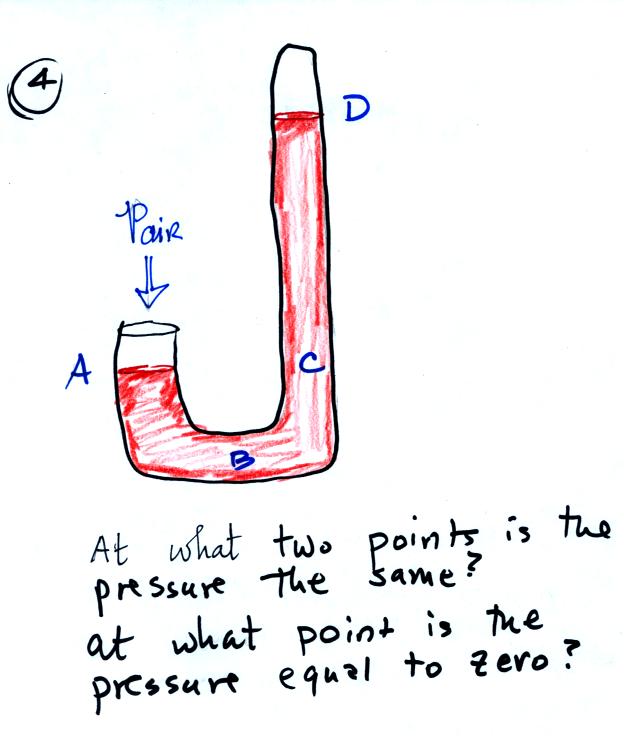 4
D
Pair
A
C
B
At what two points is the
pressure the same?
at what point is the
pressure equal to zero?